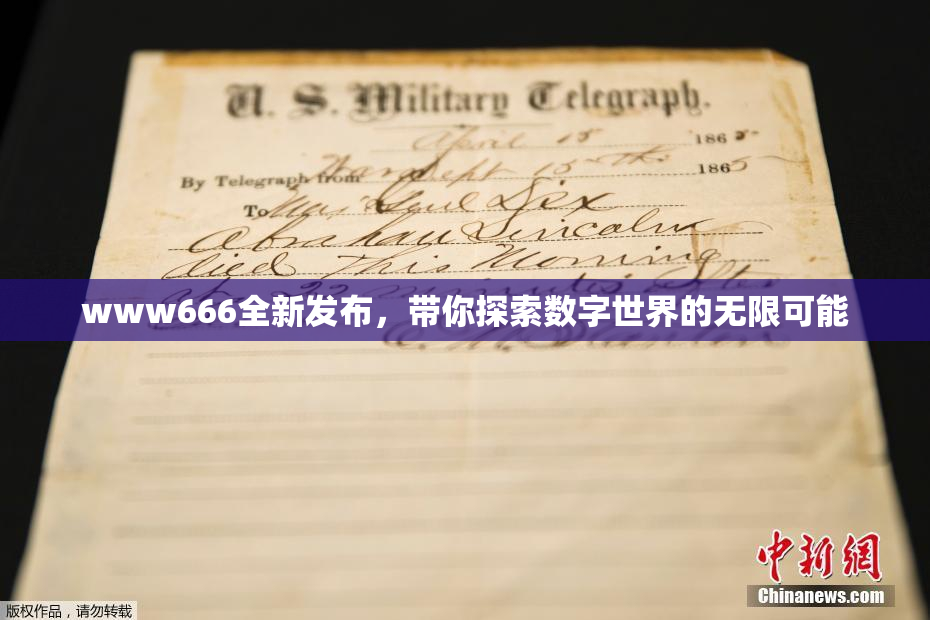 U. S. Military Telegraph.
April 15 1865
By Telegraph from War Dept 15th 1865
To Maj Genl Dix
Abraham Lincoln
died This Morning
22 minutes after
www666全新发布，带你探索数字世界的无限可能
中新網
Chinanews.com
版权作品，请勿转载